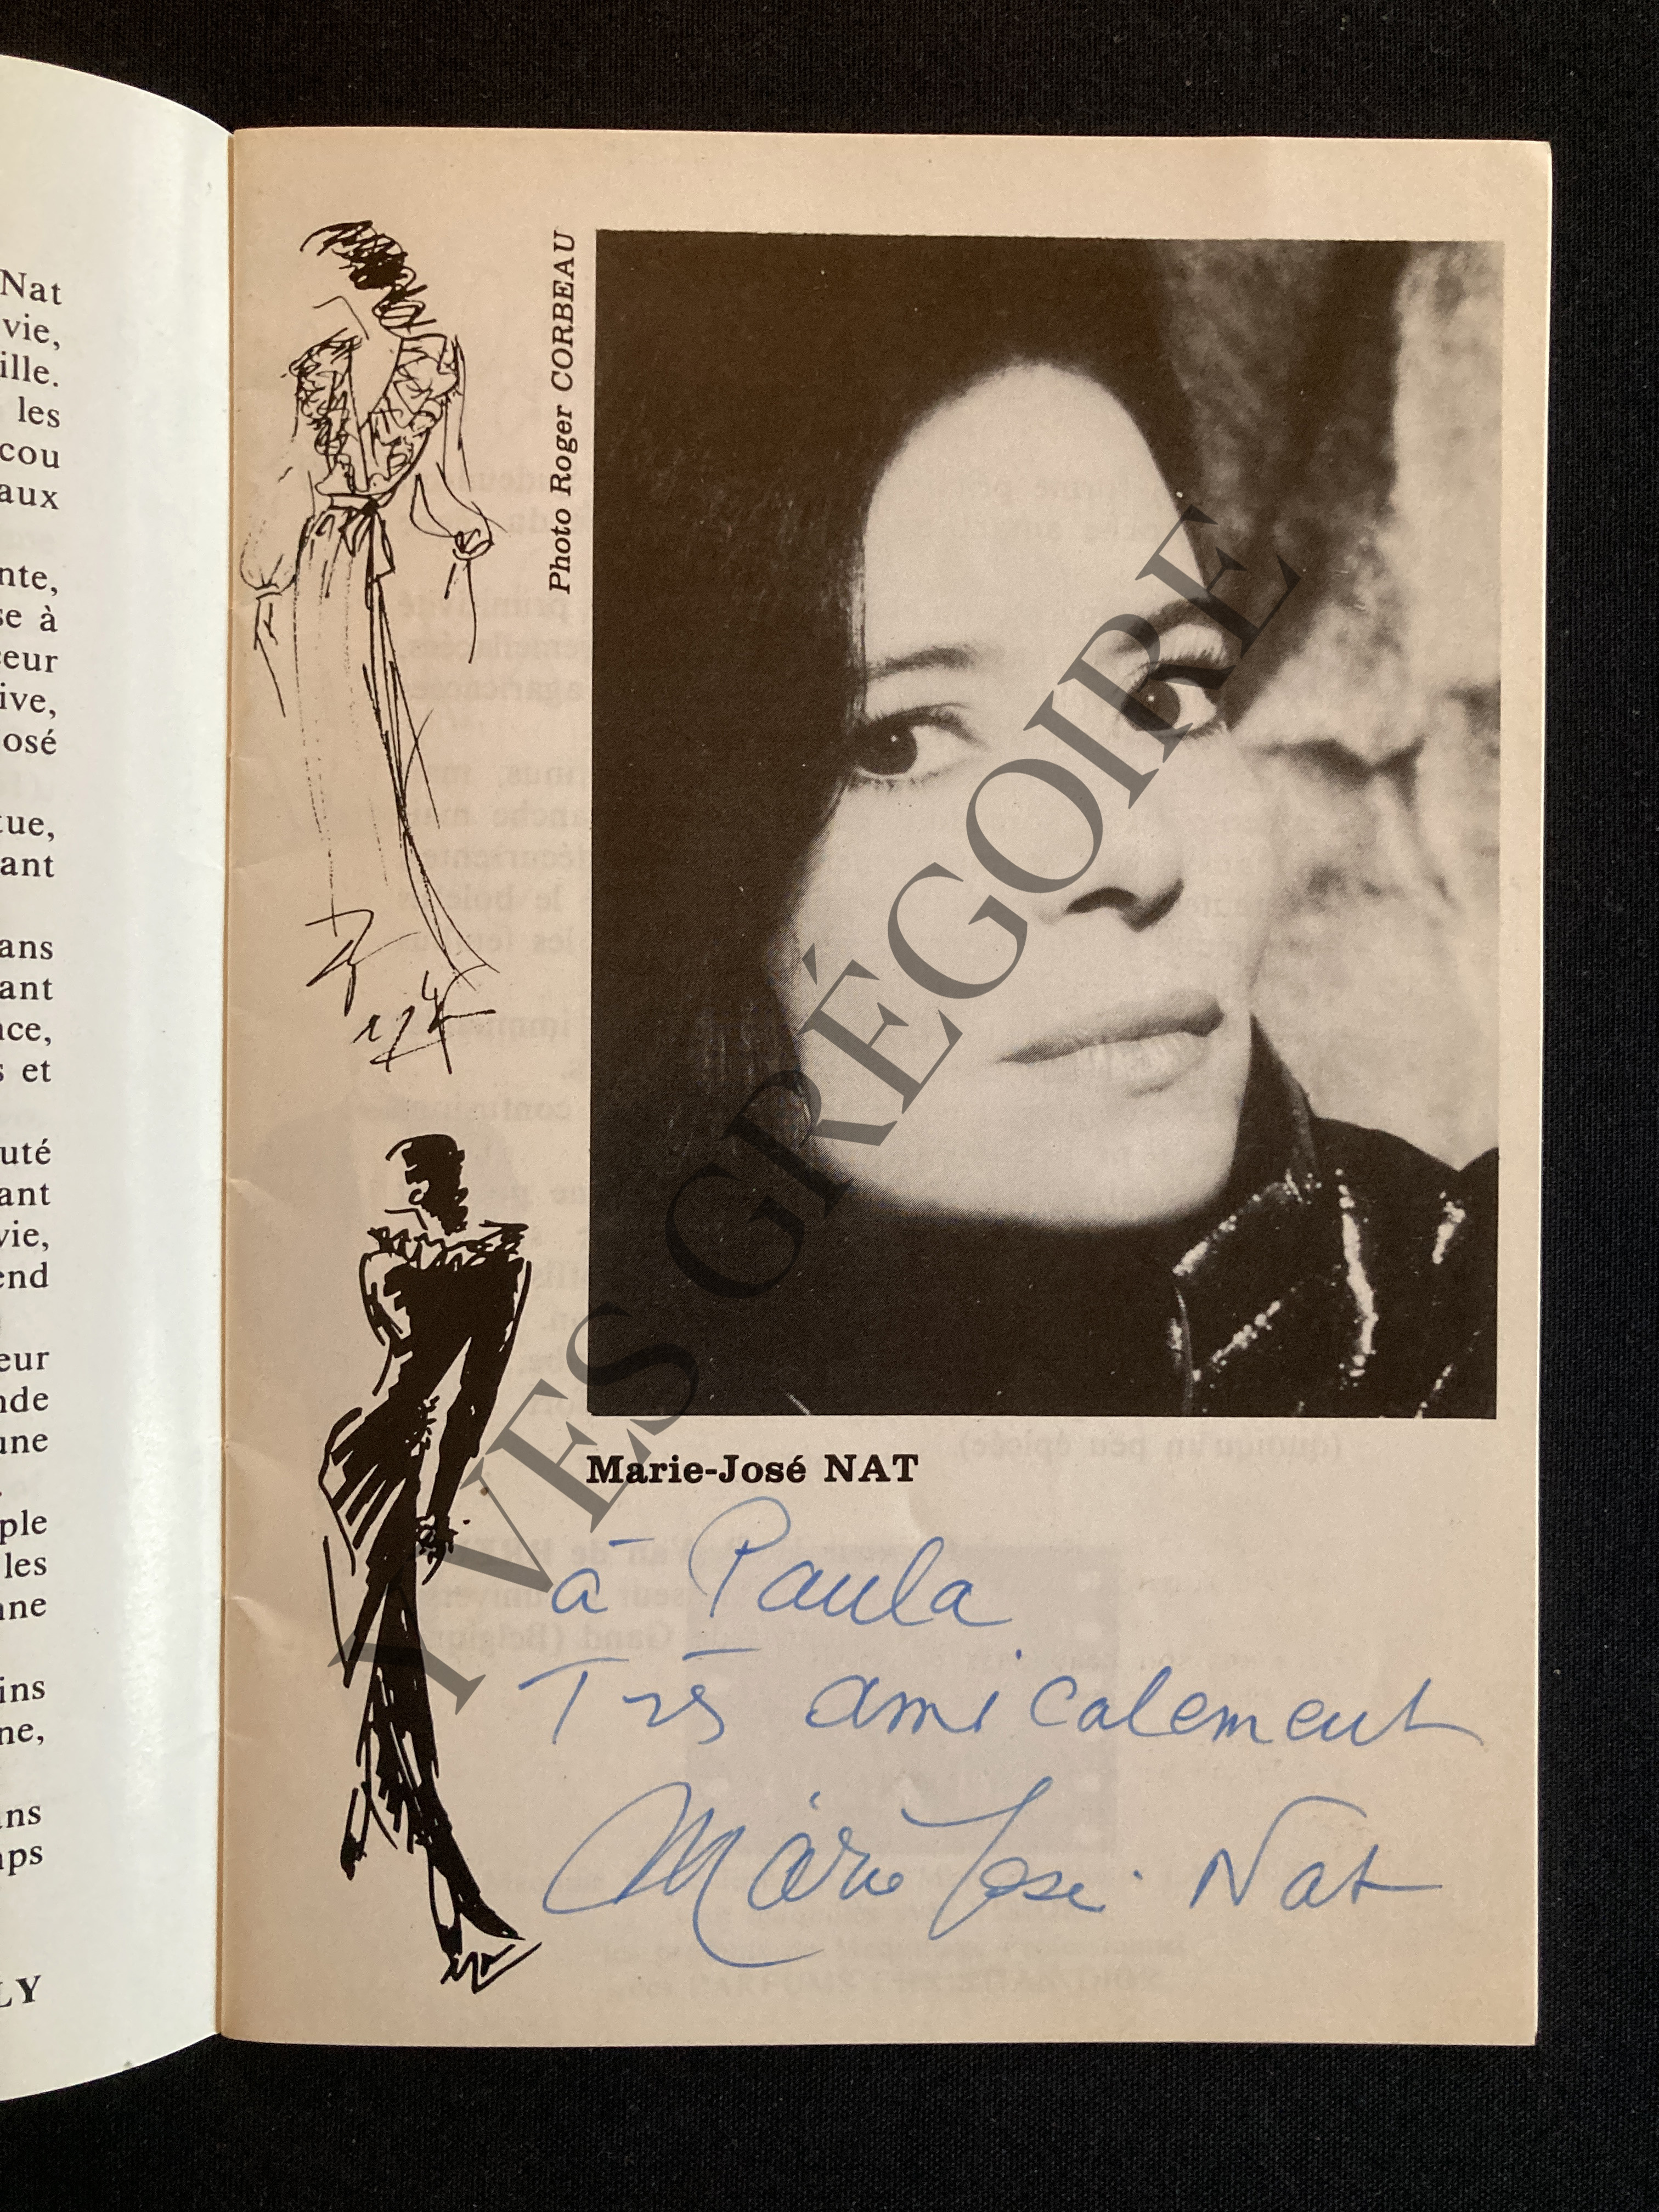 Nat
vie,
ille.
les
cou
aux
nte,
se à
ceur
ive,
osé
tue,
ant
ans
ant
nce,
s et
uté
ant
vie,
end
eur
nde
une
ple
les
nne
ins
ne,
ans
mps
LY
Photo Roger CORBEAU
Marie-José NAT
à Paula
Très amicalement
Marie José Nat
YVES GRÉGOIRE